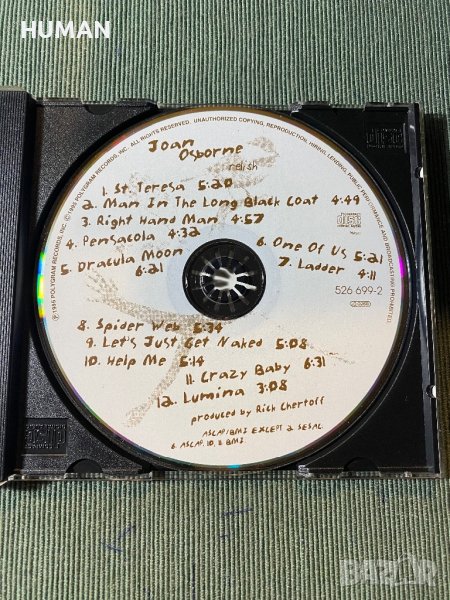 HUMAN
℗ 1995 POLYGRAM RECORDS, INC. © 1995 POLYGRAM RECORDS, INC. ALL RIGHTS RESERVED. UNAUTHORIZED COPYING, REPRODUCTION, HIRING, LENDING, PUBLIC PERFORMANCE AND BROADCASTING PROHIBITED.
Joan
Osborne
relish
1. St. Teresa 5:20
2. Man In The Long Black Coat 4:49
3. Right Hand Man 4:57
4. Pensacola 4:32
5. Dracula Moon
6:21
6. One Of Us 5:21
7. Ladder 4:11
526 699-2
8. Spider Web 5:34
9. Let's Just Get Naked 5:08
10. Help Me 5:14
11. Crazy Baby 6:31
12. Lumina 3:08
produced by Rick Chertoff
ASCAP/BMI EXCEPT 2. SESAC
6. ASCAP. 10. & BMI.
BAZAR